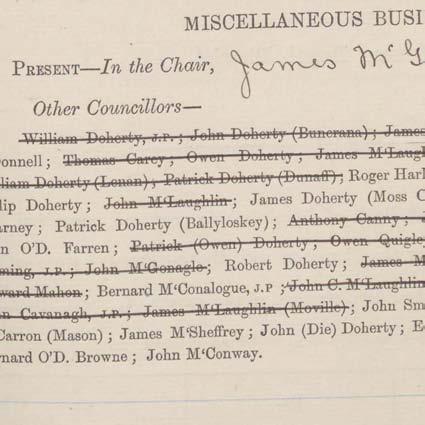 MISCELLANEOUS BUSI
PRESENT—In the Chair, James McG
Other Councillors—
William Doherty, J.P.; John Doherty (Buncrana); James
onnell; Thomas Carey; Owen Doherty; James M'Laugh
liam Doherty (Lenan); Patrick Doherty (Dunaff); Roger Harl
lip Doherty; John M'Laughlin; James Doherty (Moss C
arney; Patrick Doherty (Ballyloskey); Anthony Canny;
n O'D. Farren; Patrick (Owen) Doherty; Owen Quigle
ming, J.P.; John M'Gonagle; Robert Doherty; James M
ward Mahon; Bernard M'Conalogue, J.P; John C. M'Laughlin
n Cavanagh, J.P.; James M'Laughlin (Moville); John Sm
Carron (Mason); James M'Sheffrey; John (Die) Doherty; E
rnard O'D. Browne; John M'Conway.